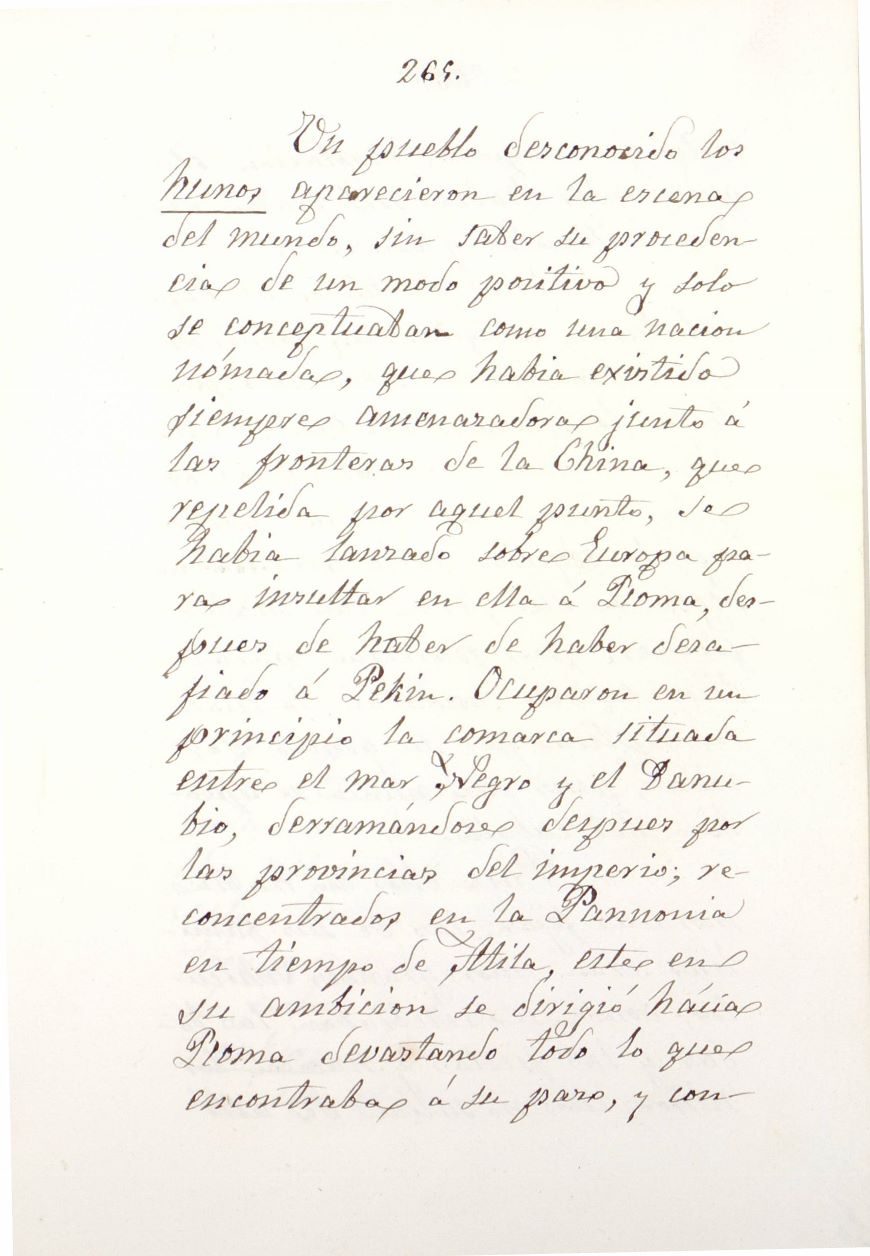 265.
Un pueblo desconocido los
hunos aparecieron en la escena
del mundo, sin saber su proceden-
cia de un modo positivo y solo
se conceptuaban como una nacion
nómada, que habia existido
siempre amenazadora junto á
las fronteras de la China, que
repelida por aquel punto, se
habia lanzado sobre Europa pa-
ra insultar en ella á Roma, des-
pues de haber de haber desa-
fiado á Pekin. Ocuparon en un
principio la comarca situada
entre el mar Negro y el Danu-
bio, derramándose despues por
las provincias del imperio; re-
concentrados en la Pannonia
en tiempo de Atila, este en
su ambicion se dirigió hácia
Roma devastando todo lo que
encontraba á su paso, y con-